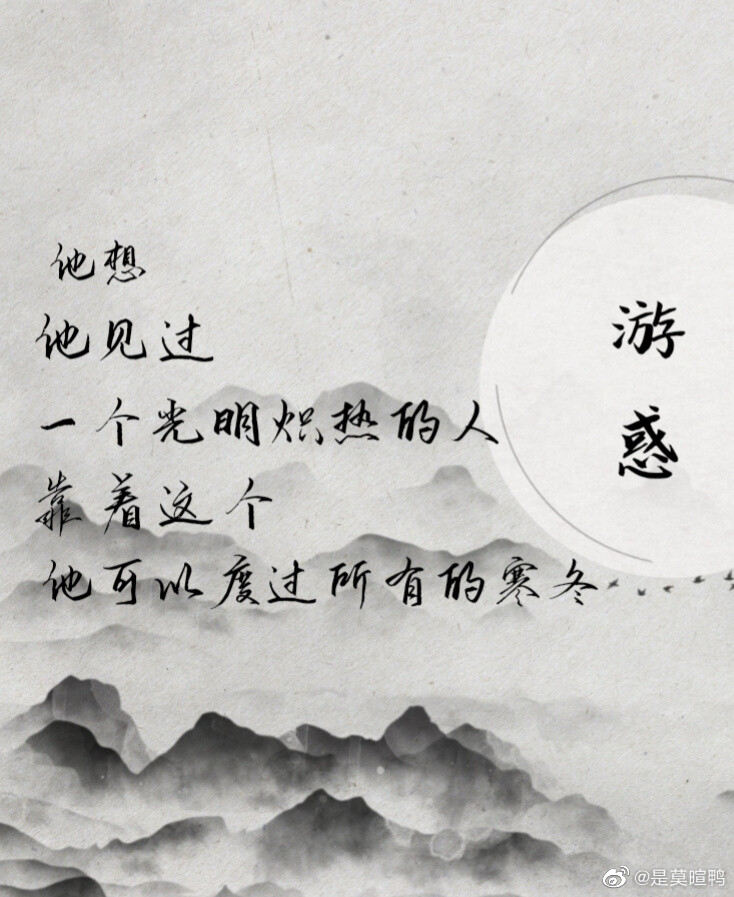 他想
他见过
一个光明炽热的人
靠着这个
他可以度过所有的寒冬
游惑
@是莫暄鸭